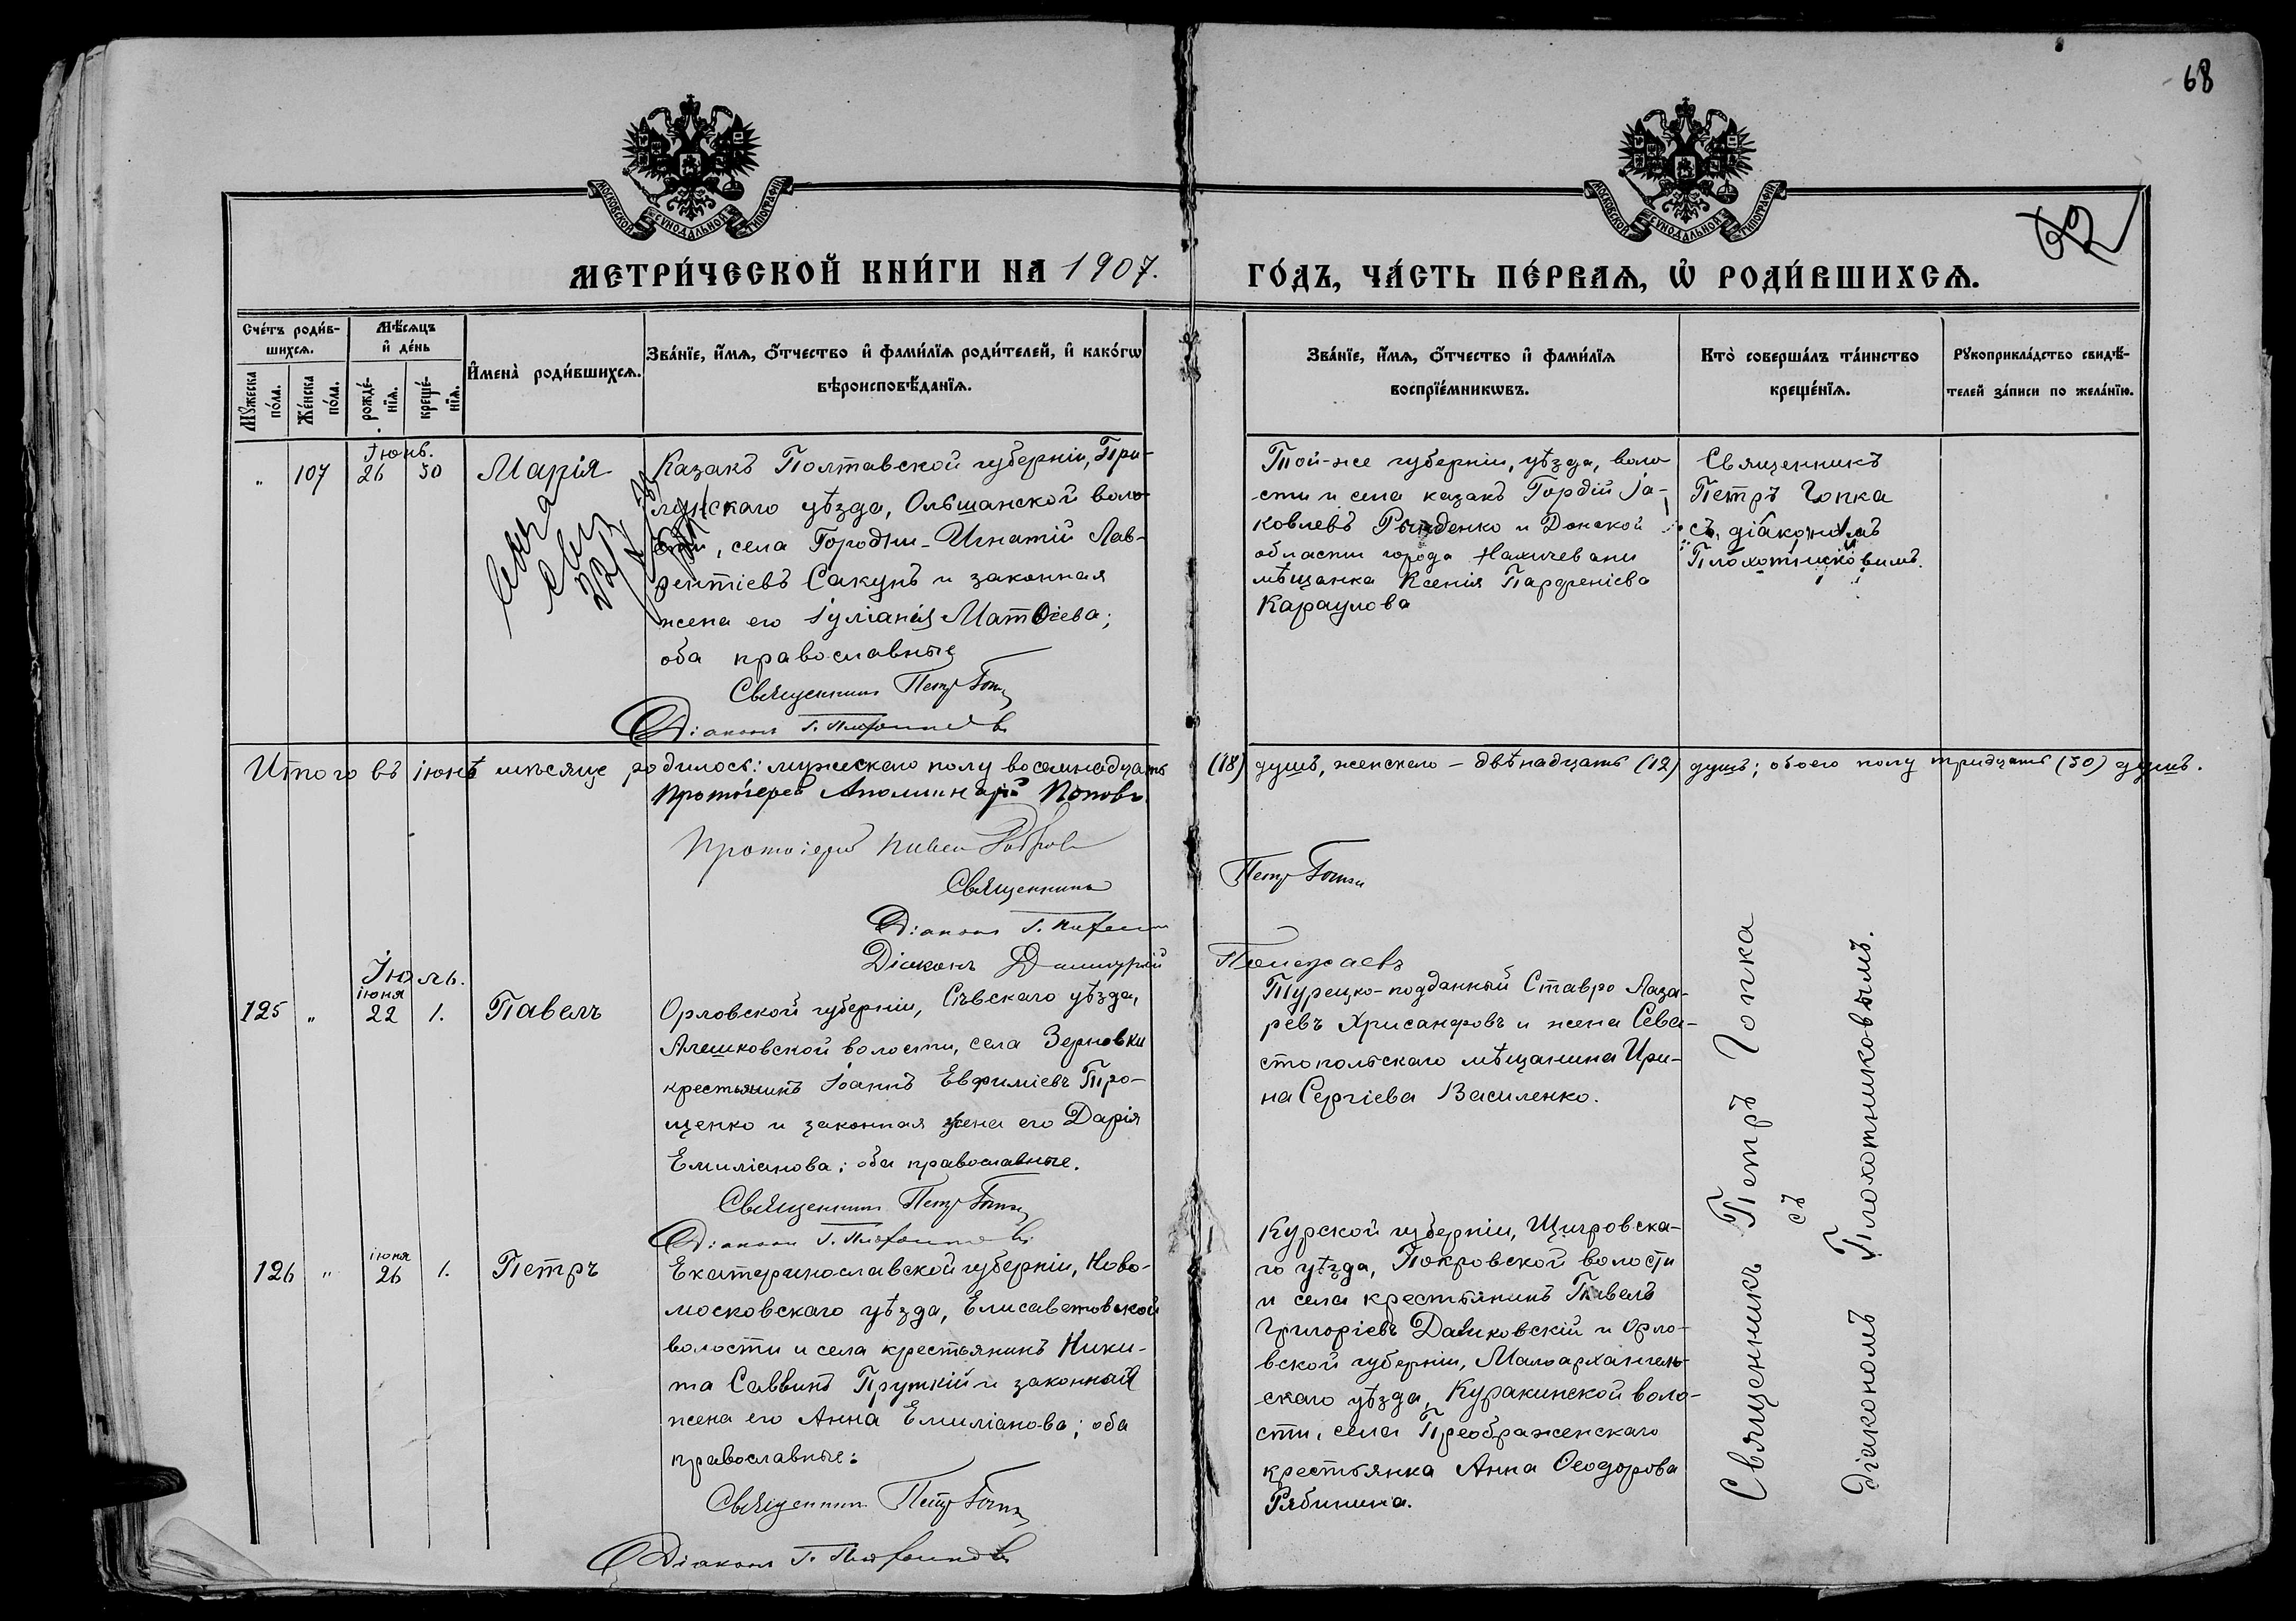 68
МОСКОВСКОЙ СѴНОДАЛЬНОЙ ТИПОГРАФІИ
МОСКОВСКОЙ СѴНОДАЛЬНОЙ ТИПОГРАФІИ
МЕТРИ́ЧЕСКОЙ КНИ́ГИ НА 1907.
ГО́ДЪ, ЧА́СТЬ ПЕ́РВАѦ, Ѡ҆ РОДИ́ВШИХСѦ.
Сче́тъ роди́в-
шихсѧ.
Мѣ́сѧцъ
и҆ де́нь
Мꙋ́жеска
по́ла.
Же́нска
по́ла.
рожде́-
нїѧ.
креще́-
нїѧ.
И҆мена̀ роди́вшихсѧ.
Зва́нїе, и҆́мѧ, ѻ҆́тчество и҆ фами́лїѧ роди́телей, и҆ како́гѡ
вѣроисповѣ́данїѧ.
Зва́нїе, и҆́мѧ, ѻ҆́тчество и҆ фами́лїѧ
воспрїе́мникѡвъ.
Кто̀ соверша́лъ та́инство
креще́нїѧ.
Рꙋкоприкла́дство свидѣ́-
телей за́писи по жела́нїю.
Іюнь.
" 107 26 30 Марія
Казакъ Полтавской губерніи, При-
лукскаго уѣзда, Ольшанской воло-
сти, села Городни - Игнатій Лав-
рентіевъ Сакунъ и законная
жена его Іуліанія Матѳіева;
оба православные
Священникъ Петръ Гопка
Діаконъ Г. Плохотниковъ
Той-же губерніи, уѣзда, воло-
сти и села казакъ Гордій Іа-
ковлевъ и Донской
области города Нахичевани
мѣщанка Ксенія Парфеніева
Караулова
Священникъ
Петръ Гопка
съ діакономъ
Плохотниковымъ.
Итого въ іюнѣ мѣсяце родилось: мужескаго полу восемнадцать (18) душъ, женскаго - двѣнадцать (12) душъ; обоего полу тридцать (30) душъ.
Протоіерей Аполлинарій Поповъ
Протоіерей
Священникъ Петръ Гопка
Діаконъ Г. Плохотниковъ
Діаконъ Димитрій
Іюль.
іюня
125 " 22 1. Павелъ
Орловской губерніи, Сѣвскаго уѣзда,
Алешковской волости, села Зерновки
крестьянинъ Іоаннъ Евфиміевъ Про-
щенко и законная жена его Дарія
Емиліанова; оба православные.
Священникъ Петръ Гопка
Діаконъ Г. Плохотниковъ
Турецко-подданный Ставро Лаза-
ревъ Хрисанфовъ и жена Сева-
стопольскаго мѣщанина Ири-
на Сергіева Василенко.
іюня
126 " 26 1. Петръ
Екатеринославской губерніи, Ново-
московскаго уѣзда, Елисаветовской
волости и села крестьянинъ Ники-
та Саввинъ Пруткій и законная
жена его Анна Емиліанова; оба
православные:
Священникъ Петръ Гопка
Діаконъ Г. Плохотниковъ
Курской губерніи, Щигровска-
го уѣзда, Покровской волости
и села крестьянинъ Павелъ
Григоріевъ и Орло-
вской губерніи, Малоархангель-
скаго уѣзда, Куракинской воло-
сти, села Преображенскаго
крестьянка Анна Ѳеодорова
Рябинина.
Священникъ Петръ Гопка
съ
діакономъ Плохотниковымъ.